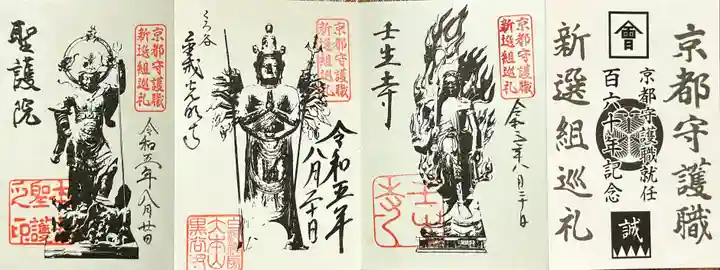 京都守護職
新選組巡礼
聖護院
令和五年八月廿日
京都守護職
新選組巡礼
くろ谷
令和五年
八月二十日
京都守護職
新選組巡礼
壬生寺
令和五年八月二十日
京都守護職
會
京都守護職就任
百六十年記念
誠
新選組巡礼